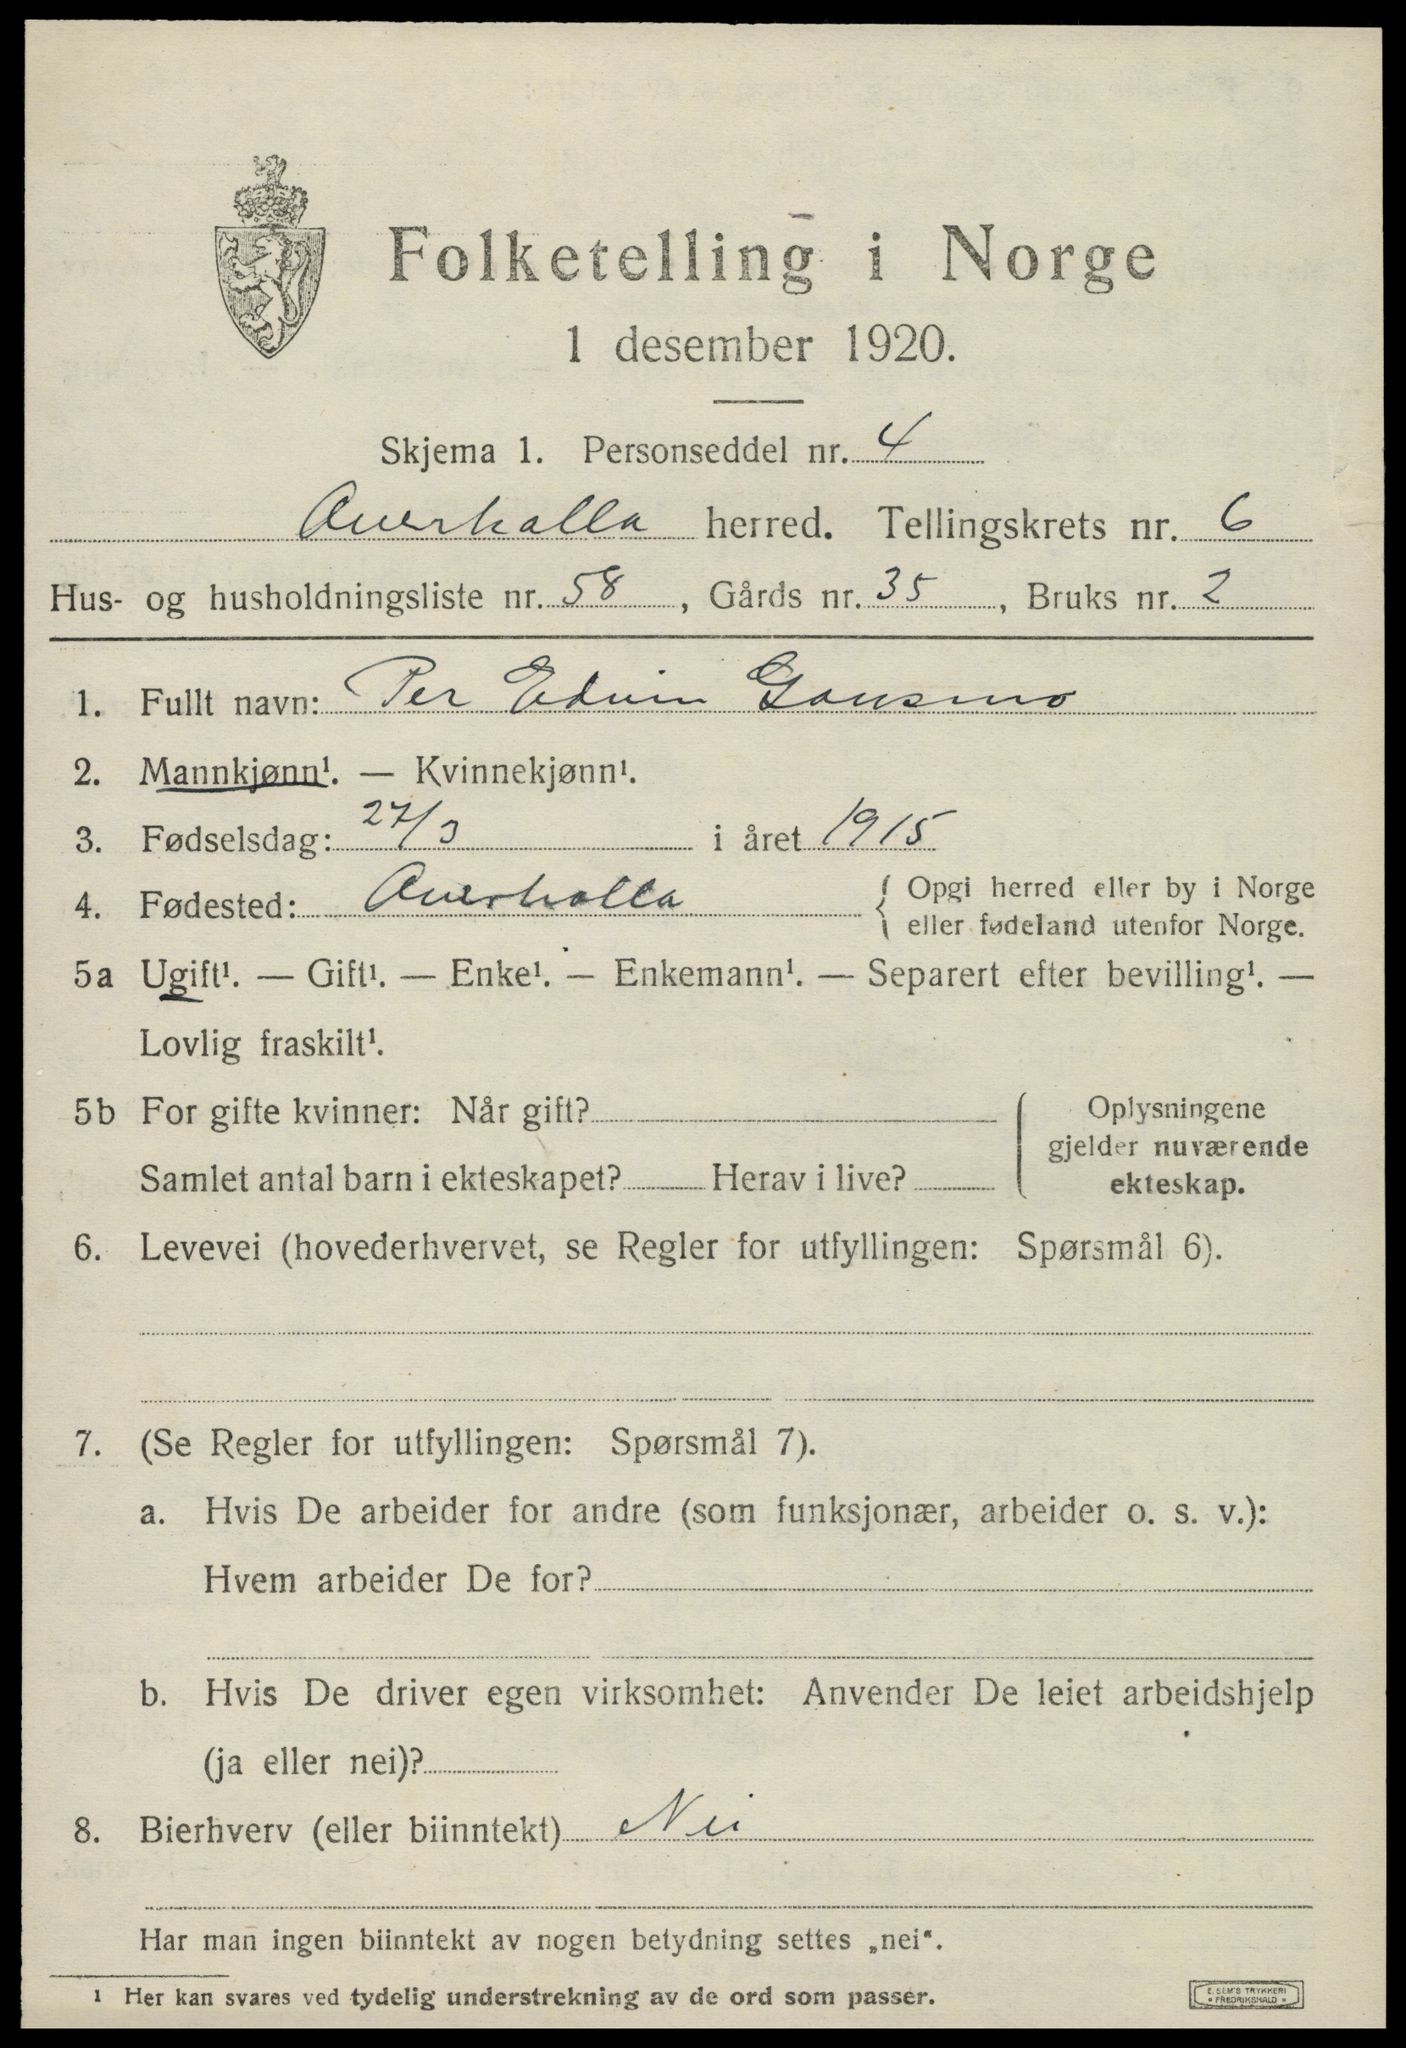 Folketelling i Norge
1 desember 1920.
Skjema 1. Personseddel nr. 4
Overhalla herred. Tellingskrets nr. 6
Hus- og husholdningsliste nr. 58, Gårds nr. 35, Bruks nr. 2
1. Fullt navn: Per Edvin Gansmo
2. Mannkjønn¹. — Kvinnekjønn¹.
3. Fødselsdag: 27/3 i året 1915
4. Fødested: Overhalla { Opgi herred eller by i Norge
eller fødeland utenfor Norge.
5a Ugift¹. — Gift¹. — Enke¹. — Enkemann¹. — Separert efter bevilling¹. —
Lovlig fraskilt¹.
5b For gifte kvinner: Når gift? Oplysningene
gjelder nuværende
Samlet antal barn i ekteskapet? Herav i live? ekteskap.
6. Levevei (hovederhvervet, se Regler for utfyllingen: Spørsmål 6).
7. (Se Regler for utfyllingen: Spørsmål 7).
a. Hvis De arbeider for andre (som funksjonær, arbeider o. s. v.):
Hvem arbeider De for?
b. Hvis De driver egen virksomhet: Anvender De leiet arbeidshjelp
(ja eller nei)?
8. Bierhverv (eller biinntekt) Nei
Har man ingen biinntekt av nogen betydning settes „nei“.
1 Her kan svares ved tydelig understrekning av de ord som passer.
E. SEM'S TRYKKERI
• FREDRIKSHALD •